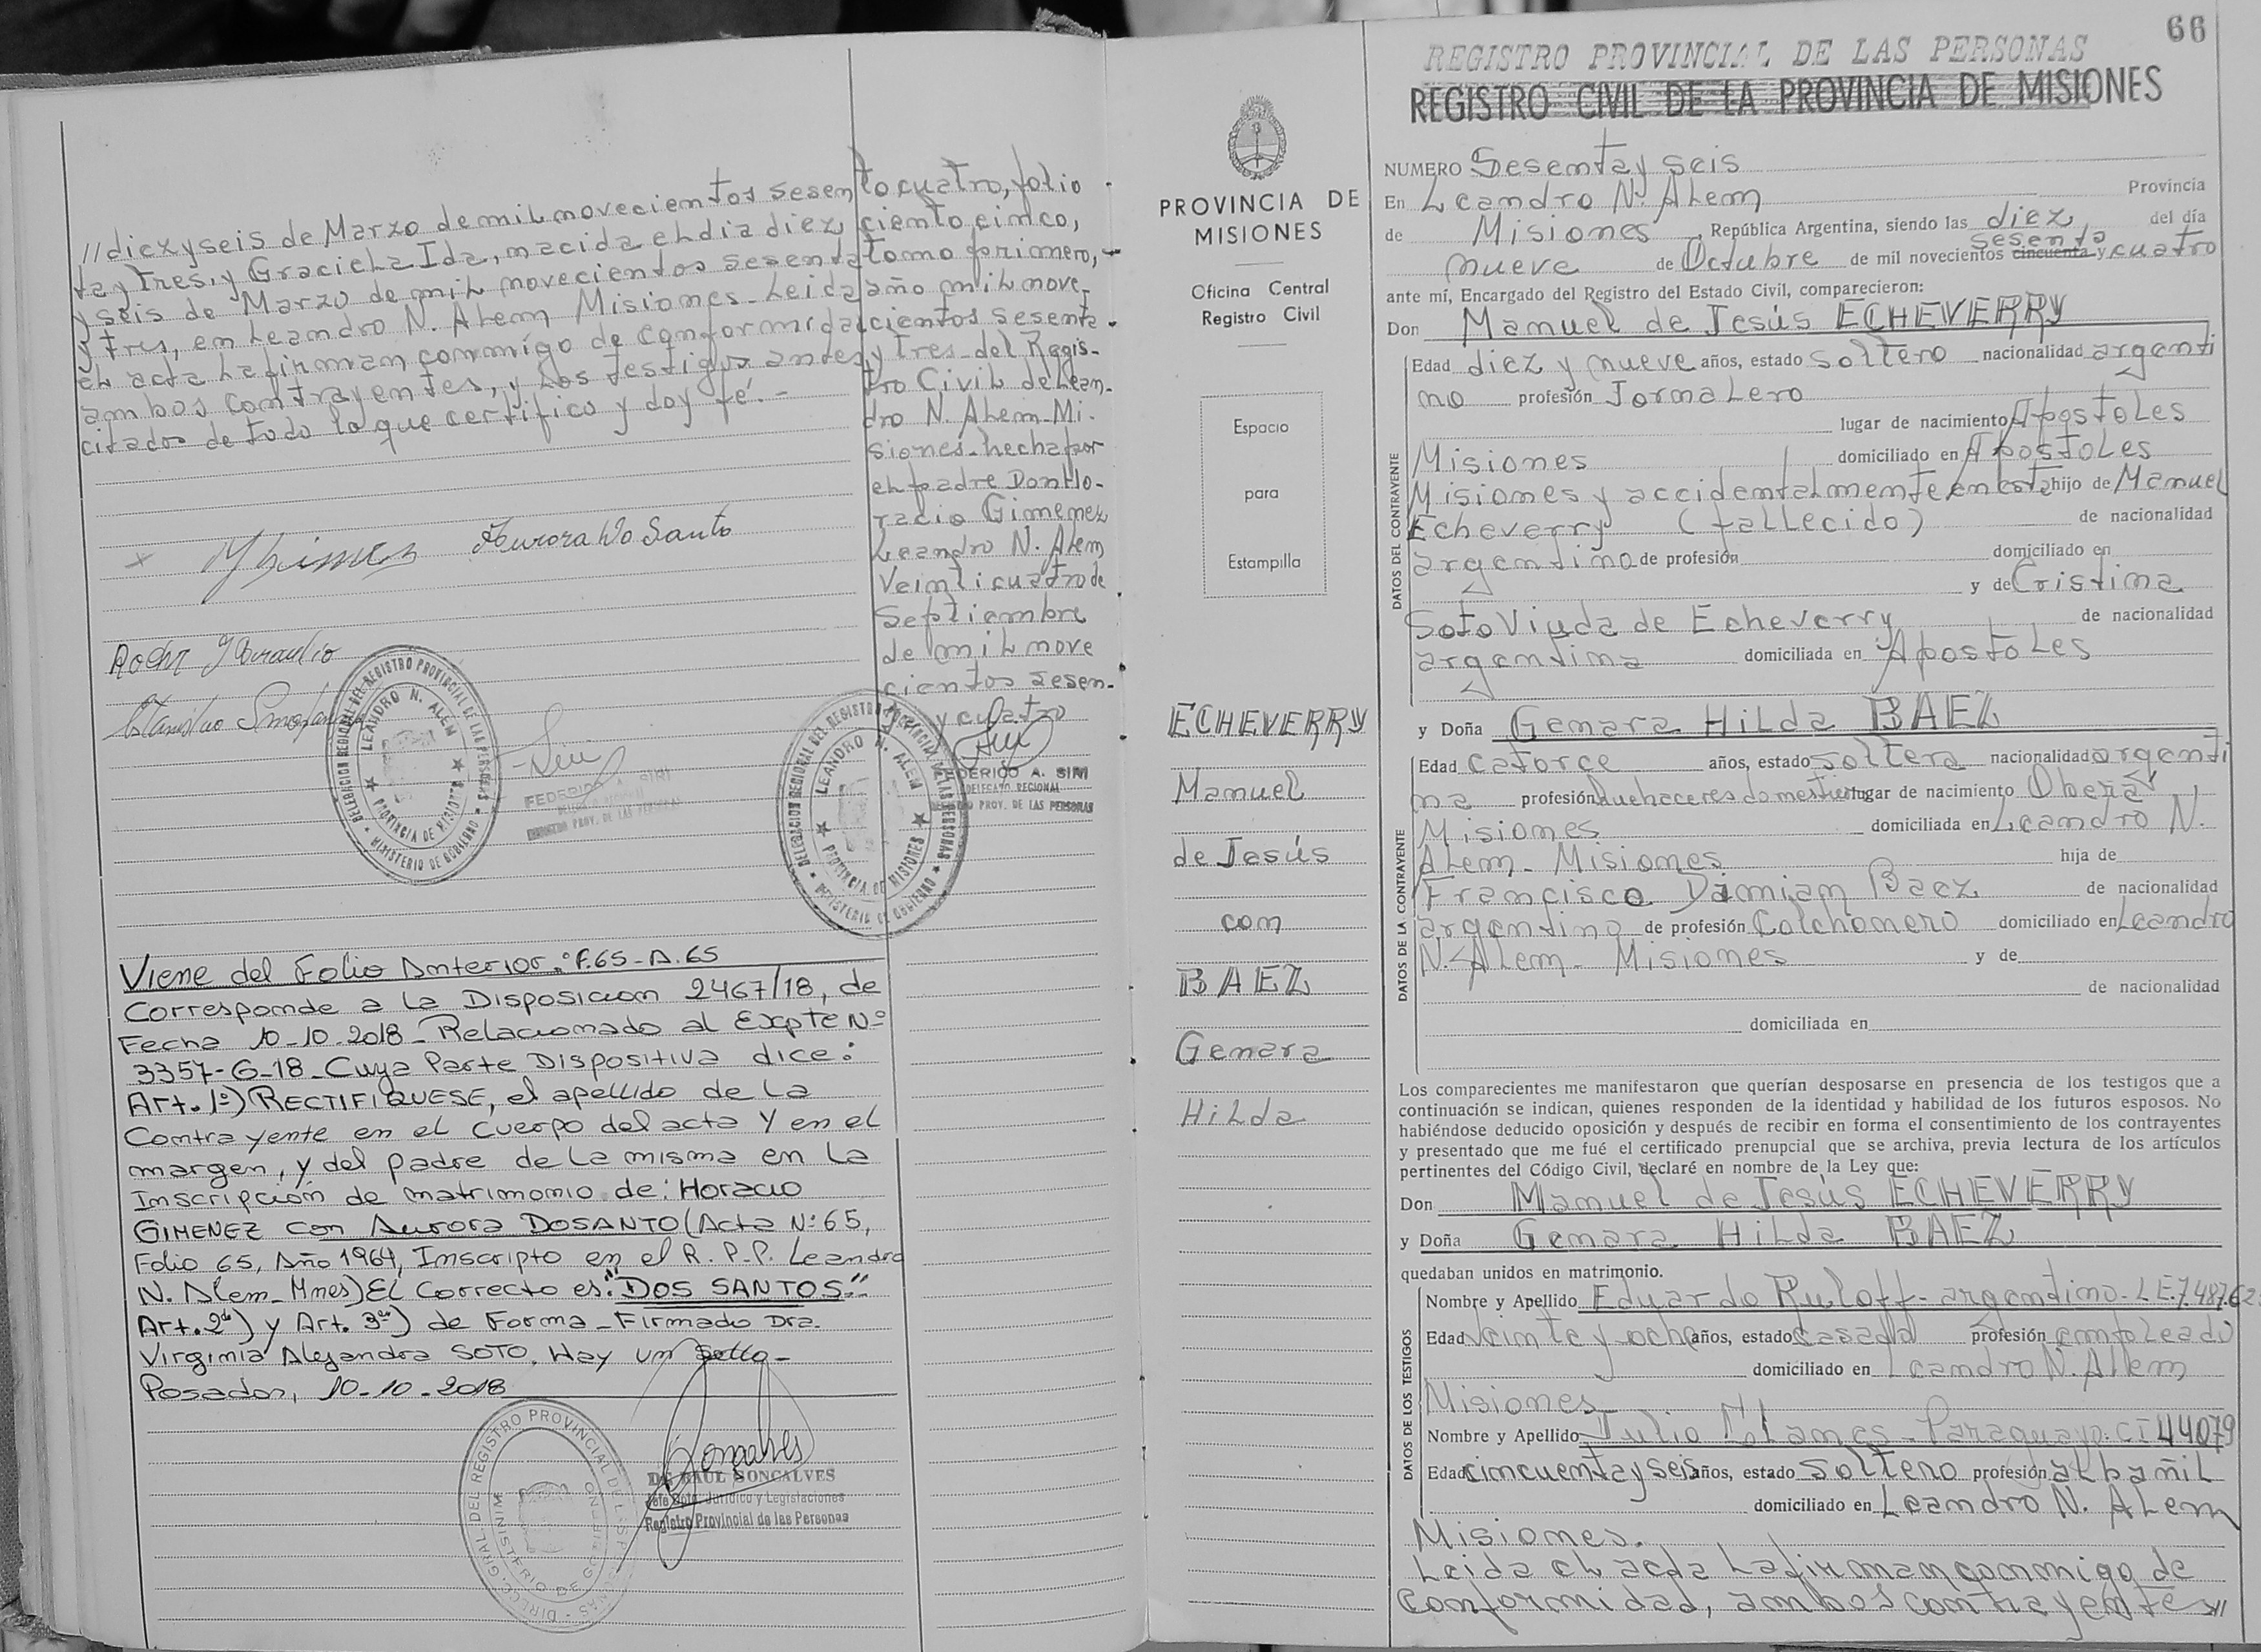 //diezyseis de Marzo de mil novecientos sesen
tay tres, y Graciela Ida, nacida el dia diez
yseis de Marzo de mil novecientos sesenta
y tres, en Leandro N. Alem Misiones - Leida
el acta la firman conmigo de conformidad
ambos contrayentes, y los testigos antes
citados de todo lo que certifico y doy fé.-
to cuatro, folio
ciento cinco,
tomo primero,
año mil nove-
cientos sesenta
y tres - del Regis-
tro Civil de Lean-
dro N. Alem - Mi-
siones - hecha por
el padre Don Ho-
racio Gimenez
Leandro N. Alem
Veinticuatro de
Septiembre
de mil nove
cientos sesen-
y cuatro
Aurora Do Santo
DELEGACION REGIONAL DEL REGISTRO PROVINCIAL DE LAS PERSONAS
LEANDRO N. ALEM
PROVINCIA DE MISIONES
MINISTERIO DE GOBIERNO
FEDERICO A. SIRI
REGISTRO PROV. DE LAS PERSONAS
DELEGACION REGIONAL DEL REGISTRO PROVINCIAL DE LAS PERSONAS
LEANDRO N. ALEM
PROVINCIA DE MISIONES
MINISTERIO DE GOBIERNO
FEDERICO A. SIRI
DELEGADO REGIONAL
REGISTRO PROV. DE LAS PERSONAS
Viene del Folio Anterior: F.65 - A.65
Corresponde a la Disposicion 2467/18, de
Fecha 10-10-2018 - Relacionado al Expte Nº
3357-G-18 - Cuya Parte Dispositiva dice:
Art. 1º) RECTIFIQUESE, el apellido de la
Contrayente en el cuerpo del acta y en el
margen, y del padre de la misma en la
Inscripción de matrimonio de: Horacio
GIMENEZ con Aurora DOSANTO (Acta Nº 65,
Folio 65, Año 1964, Inscripto en el R.P.P. Leandro
N. Alem - Mnes) El Correcto es: "DOS SANTOS"
Art. 2do) y Art. 3er) de Forma - Firmado Dra.
Virginia Alejandra SOTO. Hay un Sello -
Posadas, 10-10-2018
Goncalves
RAUL GONCALVES
Jefe Dpto. Jurídico y Legislaciones
Registro Provincial de las Personas
PROVINCIA DE
MISIONES
Oficina Central
Registro Civil
Espacio
para
Estampilla
ECHEVERRY
Manuel
de Jesús
con
BAEZ
Genara
Hilda
66
REGISTRO PROVINCIAL DE LAS PERSONAS
REGISTRO CIVIL DE LA PROVINCIA DE MISIONES
NUMERO Sesentay seis
En Leandro N. Alem Provincia
de Misiones, República Argentina, siendo las diez del día
sesenta
nueve de Octubre de mil novecientos cincuenta y cuatro
ante mí, Encargado del Registro del Estado Civil, comparecieron:
Don Manuel de Jesús ECHEVERRY
DATOS DEL CONTRAYENTE
Edad diez y nueve años, estado soltero nacionalidad argenti
no profesión Jornalero
lugar de nacimiento Apostoles
Misiones domiciliado en Apostoles
Misiones y accidentalmente en esta hijo de Manuel
Echeverry (fallecido) de nacionalidad
argentina de profesión domiciliado en
y de Cristina
Soto Viuda de Echeverry de nacionalidad
argentina domiciliada en Apostoles
y Doña Genara Hilda BAEZ
DATOS DE LA CONTRAYENTE
Edad catorce años, estado soltera nacionalidad argenti
na profesión quehaceres domesticos lugar de nacimiento Oberá
Misiones domiciliada en Leandro N.
Alem - Misiones hija de
Francisco Damian Baez de nacionalidad
argentino de profesión Colchonero domiciliado en Leandro
N. Alem - Misiones y de
de nacionalidad
domiciliada en
Los comparecientes me manifestaron que querían desposarse en presencia de los testigos que a
continuación se indican, quienes responden de la identidad y habilidad de los futuros esposos. No
habiéndose deducido oposición y después de recibir en forma el consentimiento de los contrayentes
y presentado que me fué el certificado prenupcial que se archiva, previa lectura de los artículos
pertinentes del Código Civil, declaré en nombre de la Ley que:
Don Manuel de Jesús ECHEVERRY
y Doña Genara Hilda BAEZ
quedaban unidos en matrimonio.
DATOS DE LOS TESTIGOS
Nombre y Apellido Eduardo Ruloff - argentino - LE. 7.487.62
Edad veinte y ocho años, estado casado profesión empleado
domiciliado en Leandro N. Alem
Misiones
Nombre y Apellido Julio - Paraguayo: CI 44079
Edad cincuentayseis años, estado soltero profesión albañil
domiciliado en Leandro N. Alem
Misiones.
Leida el acta la firman conmigo de
conformidad, ambos contrayentes //